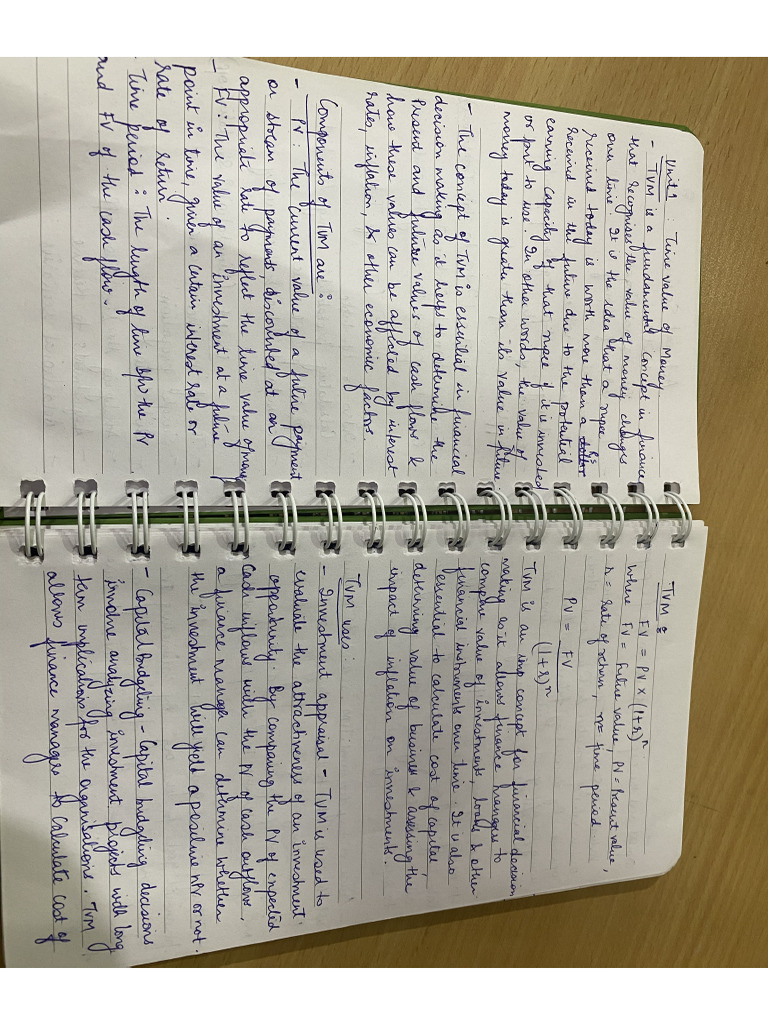 Unit 1 : Time value of Money
- TVM is a fundamental concept in finance
that recognises the value of money changes
over time. It is the idea that a rupee
received today is worth more than a Rs
received in the future due to the potential
earning capacity of that rupee if it is invested
or put to use. In other words, the value of
money today is greater than its value in future.
- The concept of TVM is essential in financial
decision making as it helps to determine the
Present and future values of cash flows &
how these values can be affected by interest
rates, inflation, & other economic factors
Components of TVM are :
- PV : The current value of a future payment
or stream of payments, discounted at an
appropriate rate to reflect the time value of money
- FV : The value of an investment at a future
point in time, given a certain interest rate or
rate of return.
- Time period : The length of time b/w the PV
and FV of the cash flows.
TVM :
FV = PV x (1+r)^n
where FV = Future value, PV = Present value,
r = rate of return, n = time period
PV = FV
(1+r)^n
TVM is an imp concept for financial decision
making as it allows finance managers to
compare value of investments, loans & other
financial instruments over time. It is also
essential to calculate cost of capital,
determining value of business & assessing the
impact of inflation on investments.
TVM uses :
- Investment appraisal - TVM is used to
evaluate the attractiveness of an investment
opportunity. By comparing the PV of expected
Cash inflows with the PV of cash outflows,
a finance manager can determine whether
the investment will yield a positive NPV or not.
- Capital budgeting - Capital budgeting decisions
involve analyzing investment projects with long
term implications for the organisations. TVM
allows finance managers to calculate cost of